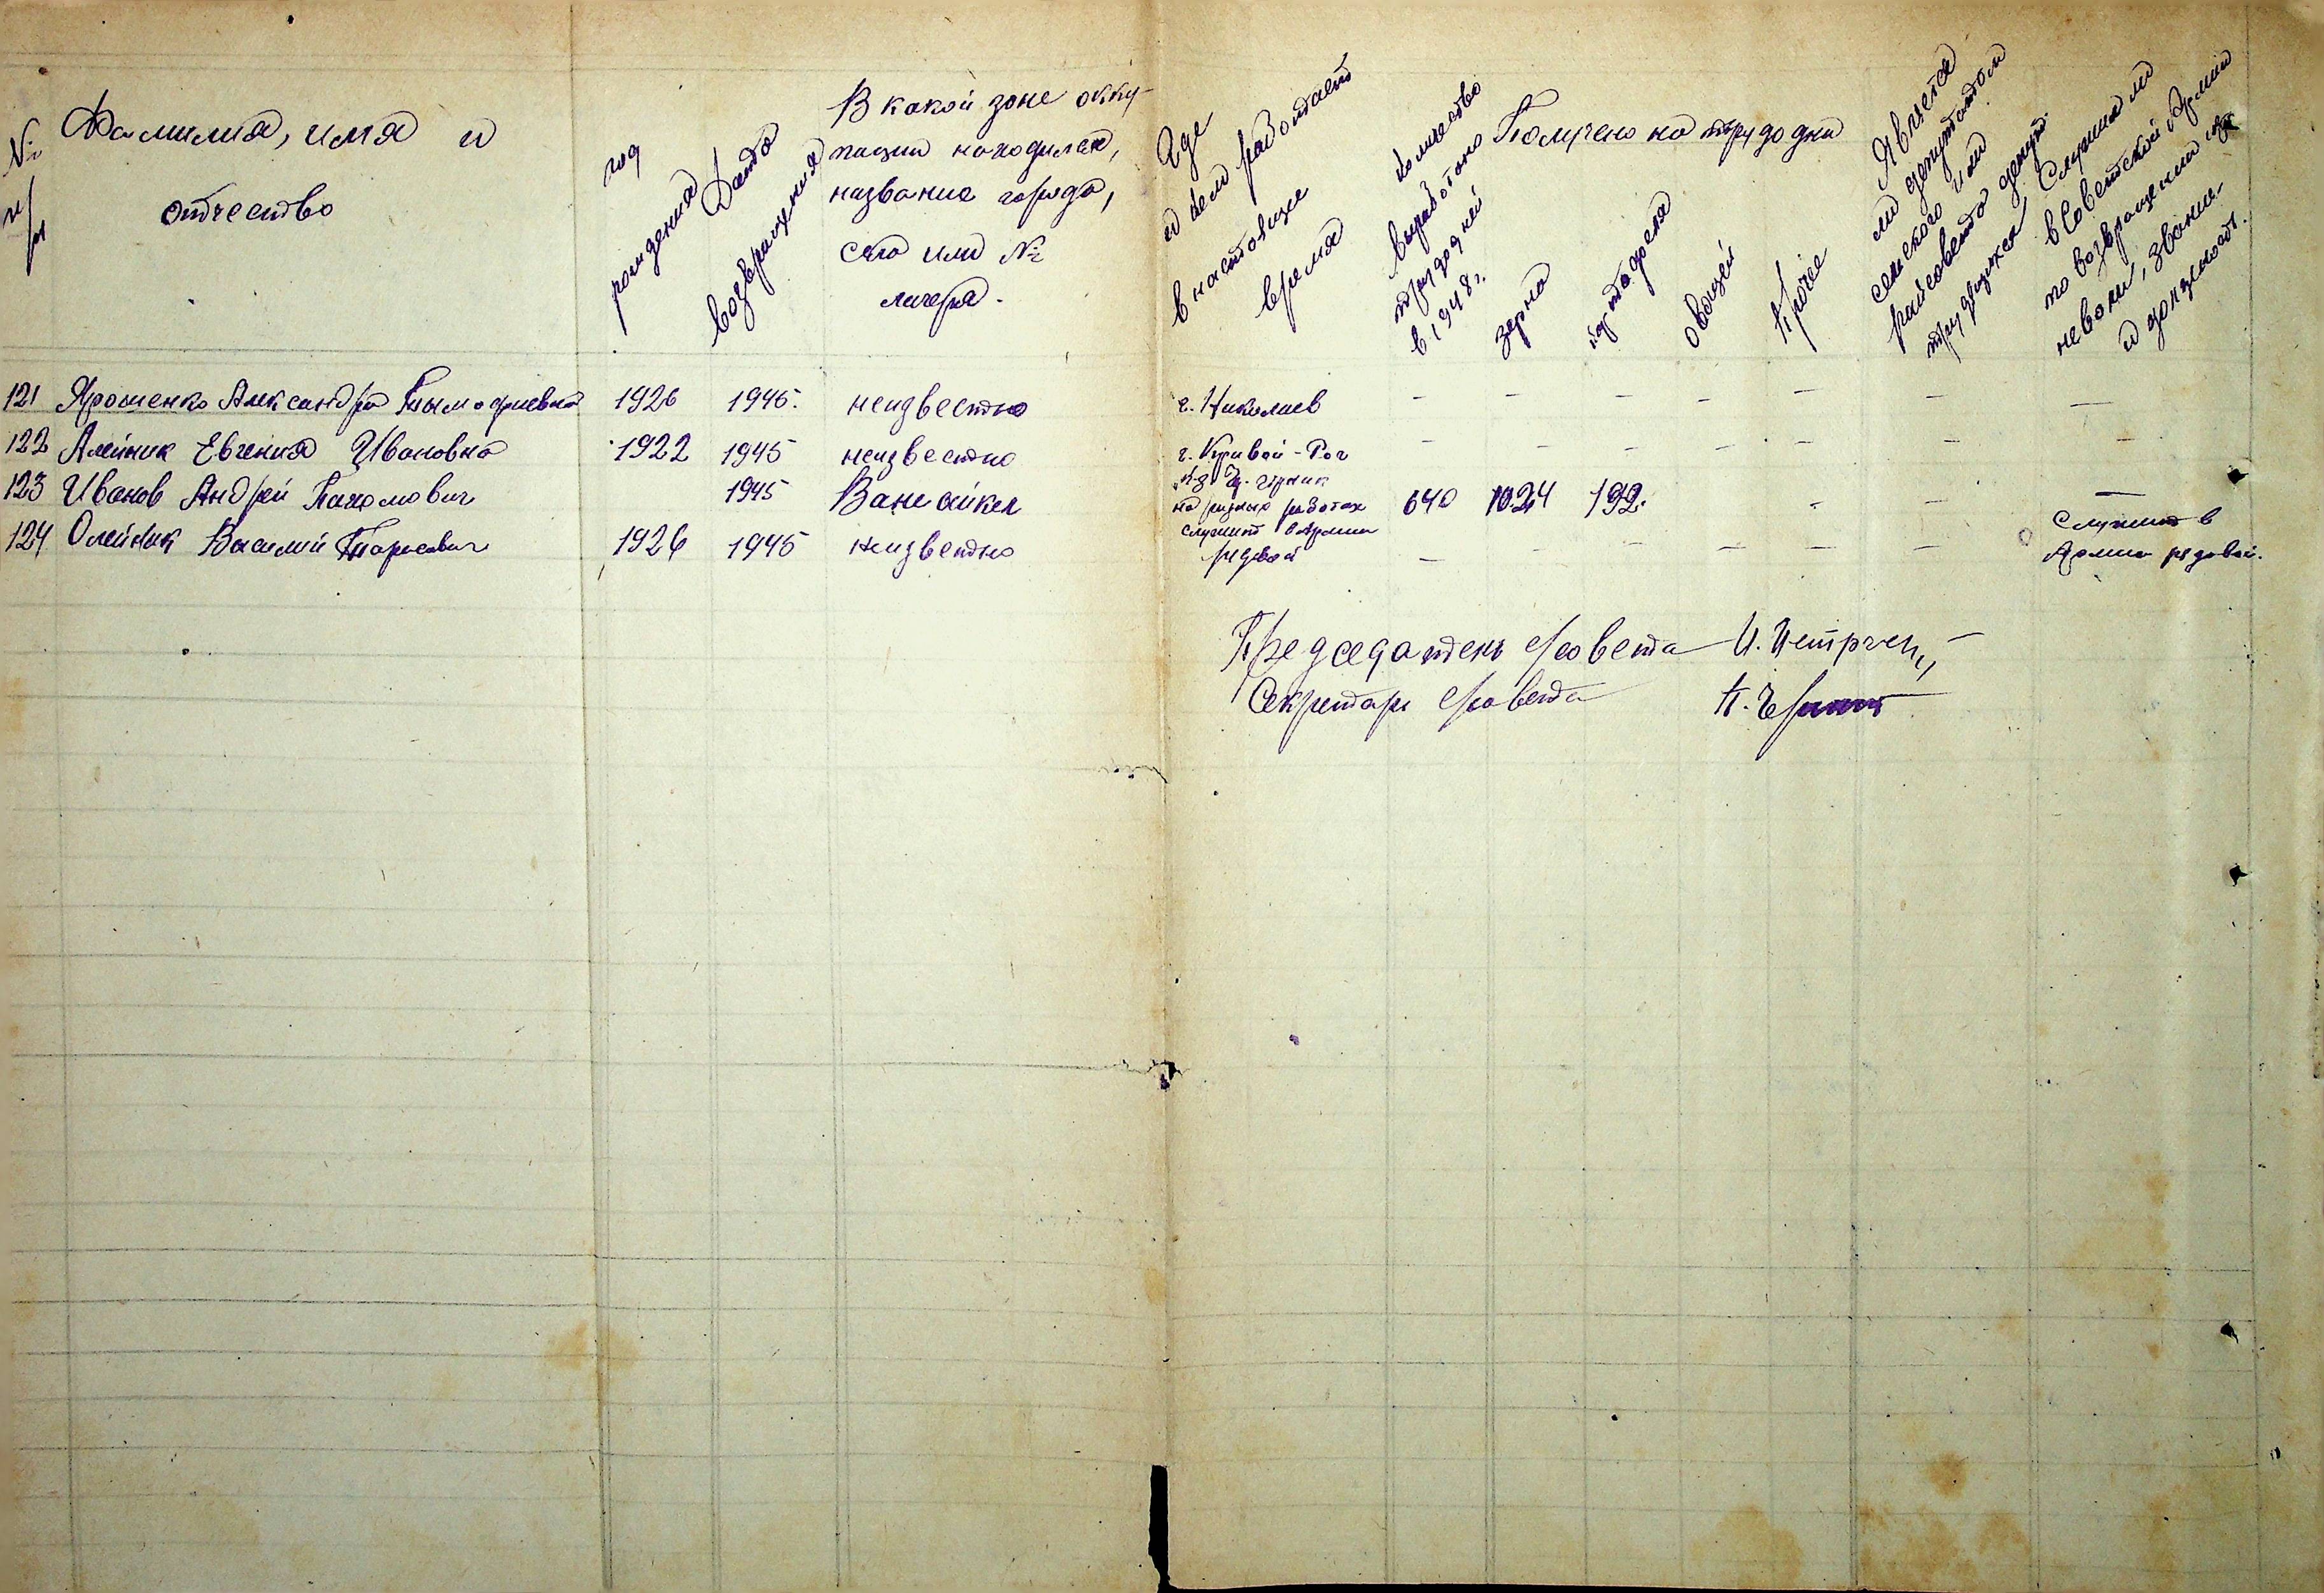 № п/п
Фамилия, имя и
отчество
год
рождения
Дата
возвращения
В какой зоне окку-
пации находился,
название города,
села или №
лагеря.
Где
и кем работает
в настоящее
время
Количество
выработано
трудодней
в 1948 г.
Получено на трудодни
зерна
картофеля
овощей
прочее
Является
ли депутатом
сельского или
райсовета депут.
трудящихся
Служил ли
в Советской Армии
по возвращении из
неволи, звание
и должность.
121 Ярошенко Александра Тымофиевна 1926 1945. неизвестно г. Николаев — — — — — — —
122 Алейник Евгения Ивановна 1922 1945 неизвестно г. Кривой-Рог — — — — — — —
123 Иванов Андрей Пахомович 1945 Вансайкел
на разных работах 640 1024 192. - - - —
124 Олейник Василий Тарасович 1926 1945 неизвестно
служит в Армии
рядовой — — — — — —
Служит в
Армии рядовой.
Председатель с/совета
Секретарь с/совета